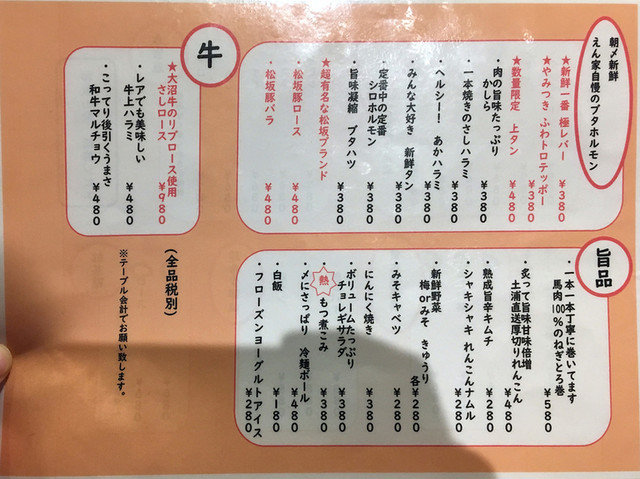 朝〆新鮮
えん家自慢のブタホルモン
★新鮮一番 極レバー ¥380
★やみつき ふわトロテッポー ¥380
★数量限定 上タン ¥480
・肉の旨味たっぷり
かしら ¥380
・一本焼きのさしハラミ ¥380
・ヘルシー！ あかハラミ ¥380
・みんな大好き 新鮮タン ¥380
・定番中の定番
シロホルモン ¥380
・旨味凝縮 ブタハツ ¥380
★超有名な松坂ブランド
・松坂豚ロース ¥480
・松坂豚バラ ¥480
牛
★大沼牛のリブロース使用
さしロース ¥980
・レアでも美味しい
牛上ハラミ ¥480
・こってり後引くうまさ
和牛マルチョウ ¥480
旨品
・一本一本丁寧に巻いてます
馬肉100%のねぎとろ巻 ¥580
・炙って旨味甘味倍増
土浦直送厚切りれんこん ¥480
・熟成旨辛キムチ ¥280
・シャキシャキ れんこんナムル ¥280
・新鮮野菜
梅orみそ きゅうり 各¥280
・みそキャベツ ¥280
・にんにく焼き ¥380
・ボリュームたっぷり
チョレギサラダ ¥380
・熱 もつ煮こみ ¥380
・〆にさっぱり 冷麺ボール ¥480
・白飯 ¥180
・フローズンヨーグルトアイス ¥280
(全品税別)
※テーブル会計でお願い致します。